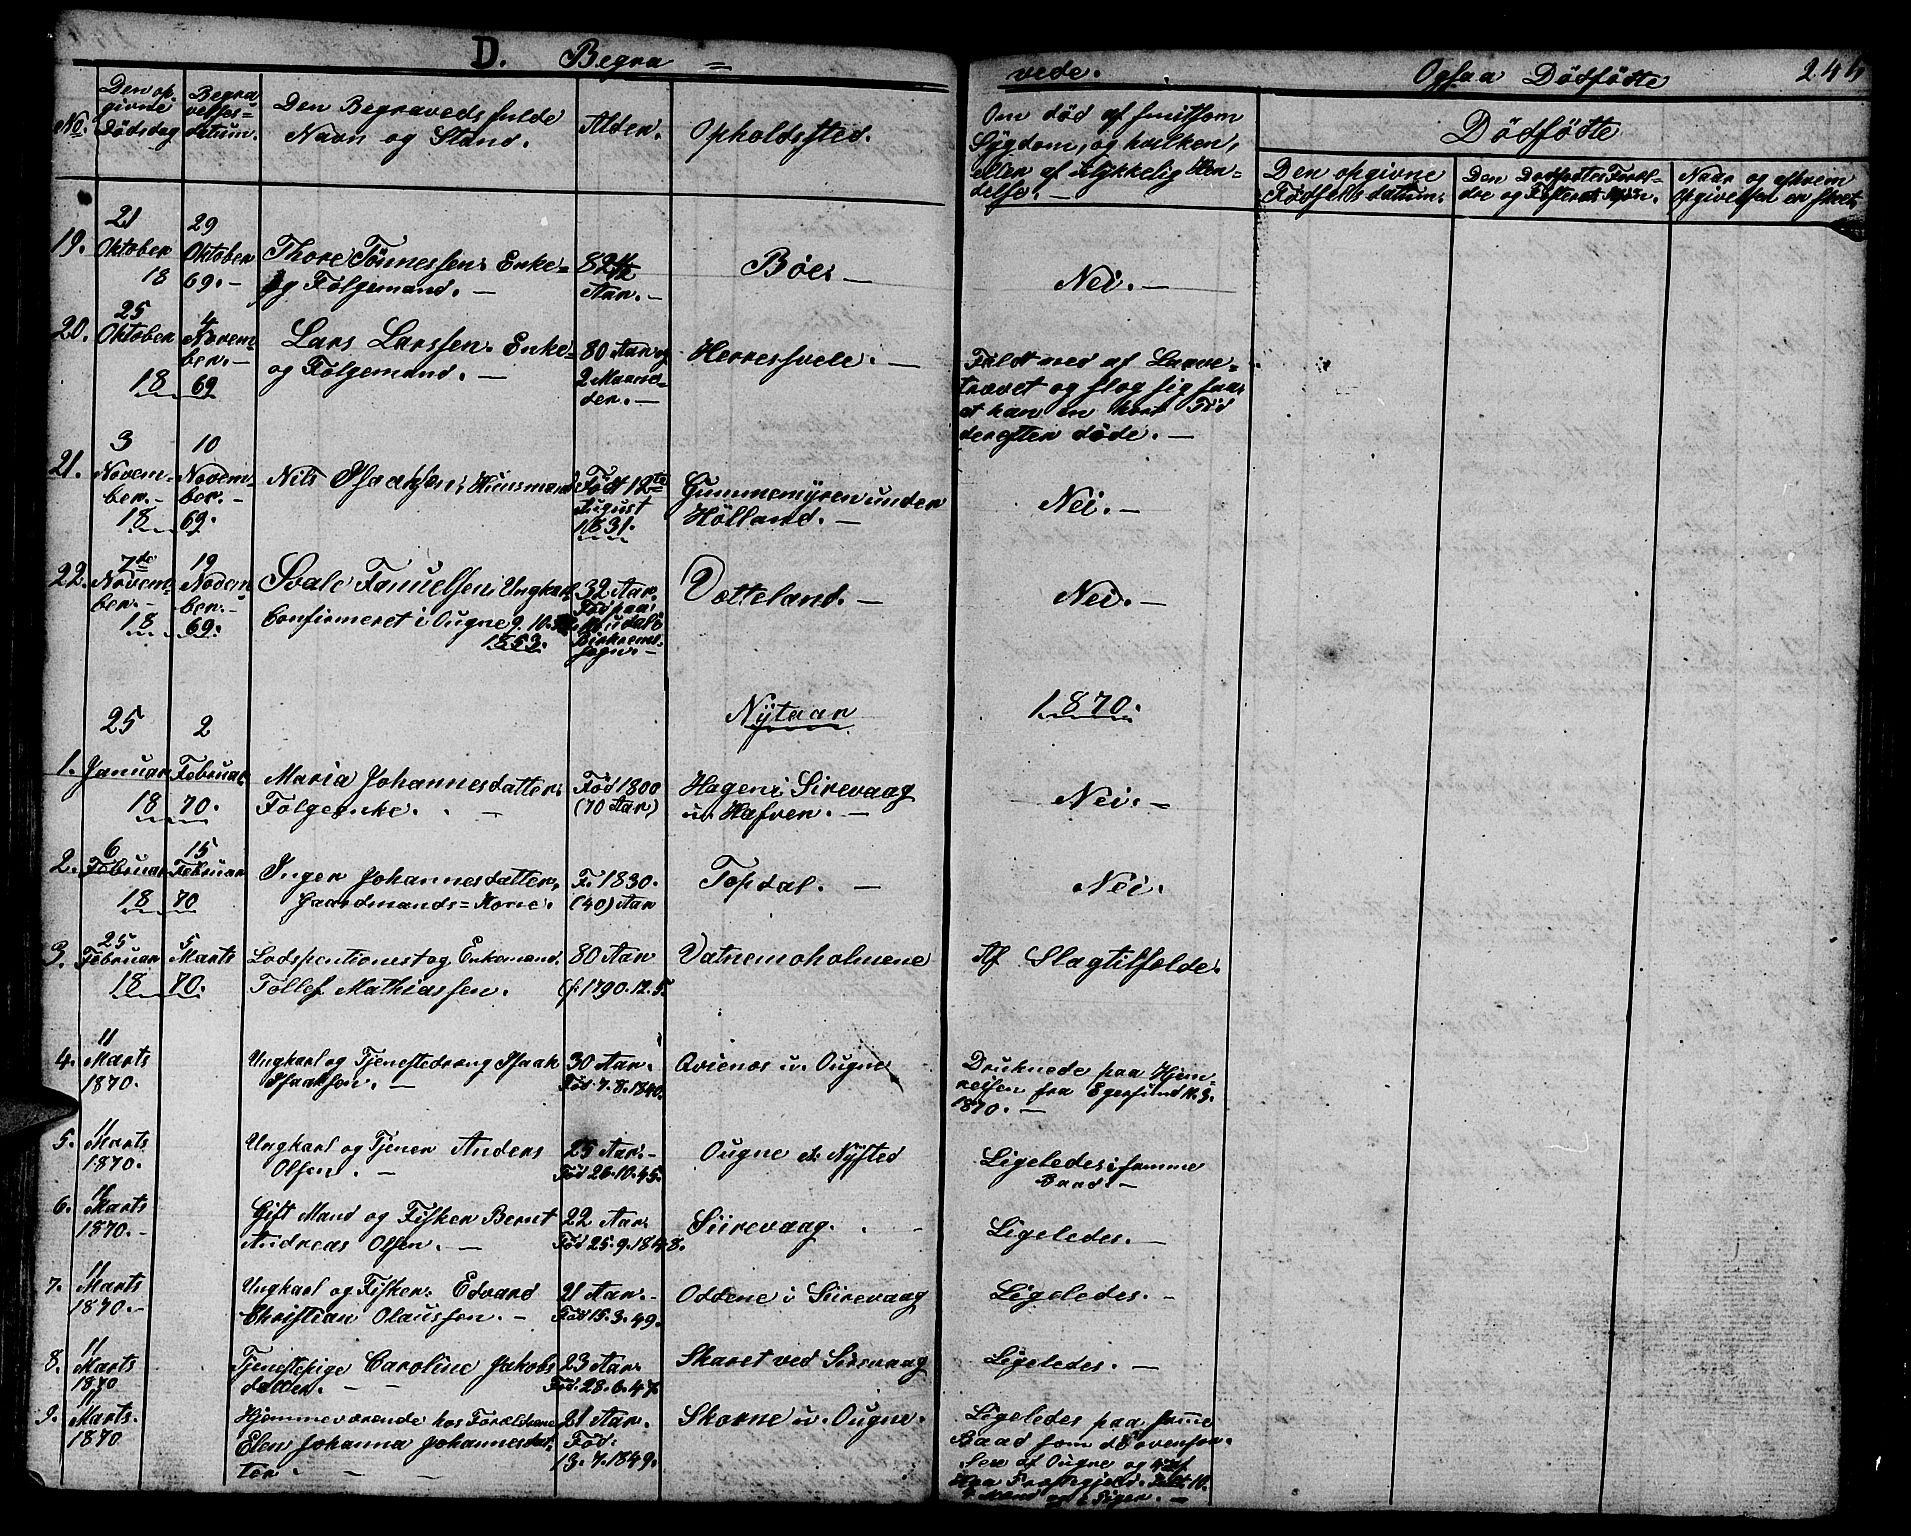 D. Begra =
vede. Ogsaa Dödfödte 244
No.
Den op-
givne
Dödsdag
Begra
velses=
datum.
Den Begravedes fulde
Navn og Stand.
Alder.
Opholdssted.
Om död af smitsom
Sygdom, og hvilken,
eller af Ulykkelig Hen=
delse. —
Dödfödte
Den opgivne
Födsels datum.
Den Dödfödtes Foræl-
dre og
Naar og efhvem
Opgivelsen er skeet
19.
21
Oktober
18
29
Oktober
69. —
Thore Tönnessen, Enke=
og Folgemand. —
82
Aar. —
Böe, —
Nei. —
20.
25
Oktober
18
4
Novem
ber. —
69
Lars Larssen, Enke=
og Folgemand. —
80 Aar og
2 Maane-
der. —
Herressvele. —
Faldt ned af Laave=
trævet og slog sig saa,
at han en kort Tid
derefter döde. —
21.
3
Novem-
ber. —
18
10
Novem-
ber. —
69.
Nils Isaaksen, Huusmand
Födt 12te
August
1831.
Gummemyren under
Hölland. —
Nei. —
22.
7de
Novem-
ber. —
18
19
Novem
ber. —
69.
Svale Tanuelsen, Ungkarl
Confirmeret i Ougne 9. 10.
1853.
32 Aar.
Föd paa
Birkrems-
sogn. —
Votteland. —
Nei. —
Nytaar
1870.
1.
25
Januar
18
2
Februar
70.
Maria Johannesdatter,
Folgeenke. —
Föd 1800
(70 Aar)
Hagen i Sirevaag
u. Hafven. —
Nei. —
2.
6
Februar
18
15
Februar
70
Inger Johannesdatter,
Gaardmands=Kone.
F. 1830.
(40) Aar
Topdal. —
Nei.
3.
25
Februar
18
5
Marts
70.
Lodspentionist og Enkemand.
Tollef Mathiassen.
80 Aar
(f. 1790. 12. 5.
Vatnemoholmene
Af Slagtilfelde.
4.
11
Marts
1870.
Ungkarl og Tjenestedreng Isaak
Isaaksen. —
30 Aar.
Föd 7. 8. 1840.
Qvienes u. Ougne
Druknede paa Hjem-
reisen fra Egersund 11. 3.
1870. —
5.
11
Marts
1870.
Ungkarl og Tjener Anders
Olsen. —
25 Aar. —
Föd 26. 10. 45.
Ougne Nysted
Ligeledes i samme
Baad. —
6.
11
Marts
1870. —
Gift Mand og Fisker Bernt
Andreas Olsen. —
22 Aar.
Föd 25. 9. 1848.
Siirevaag.
Ligeledes. —
7.
11
Marts
1870. —
Ungkarl og Fisker. Edvard
Christian Olaussen. —
21 Aar. —
Föd 15. 3. 49.
Oddene i Siirevaag
Ligeledes. —
8.
11
Marts
1870
Tjenestepige Caroline Jakobs
datter. —
23 Aar.
Föd. 28. 6. 47.
Skaret ved Siirevaag
Ligeledes. —
9.
11
Marts
1870
Hjemmeværende hos Foreldrene
Elen Johanna Johannesdat-
ter. —
21 Aar.
Föd.
13. 7. 1849.
Skorne u. Ougne.
Ligeledes paa samme
Baad som
af Ougne og